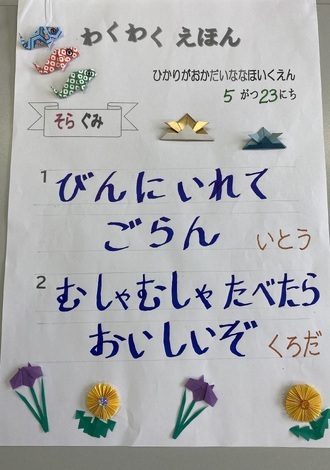 わくわく えほん
ひかりがおかだいななほいくえん
5 がつ 23にち
そら ぐみ
1 びんにいれて
ごらん いとう
2 むしゃむしゃ たべたら
おいしいぞ くろだ